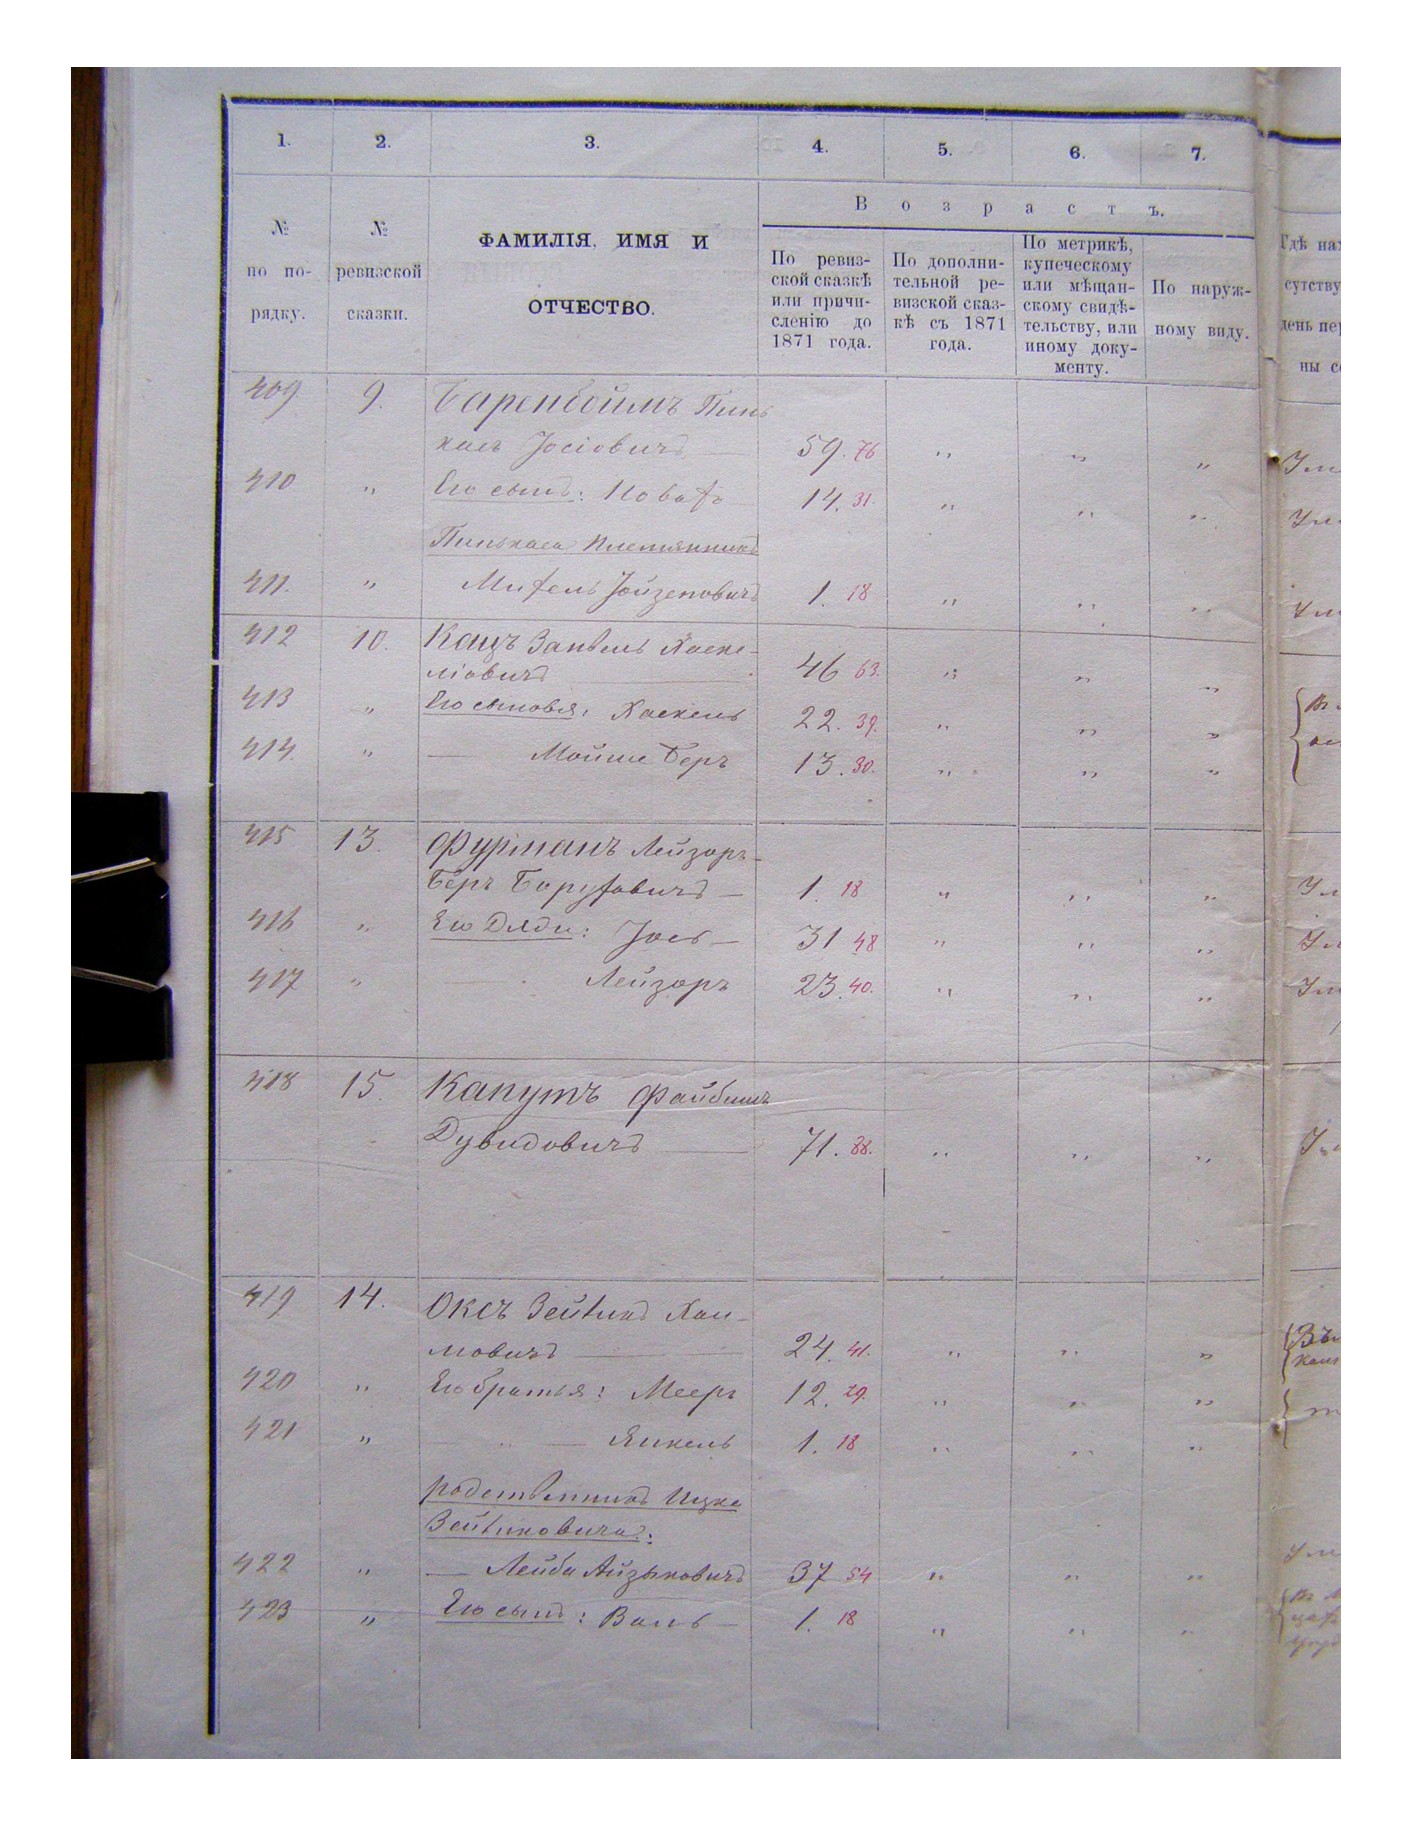 1. 2. 3. 4. 5. 6. 7.
В о з р а с т ъ.
№ по по-рядку.
№ ревизской сказки.
ФАМИЛІЯ, ИМЯ И
ОТЧЕСТВО.
По ревиз-
ской сказкѣ
или причи-
сленію до
1871 года.
По дополни-
тельной ре-
визской сказ-
кѣ съ 1871
года.
По метрикѣ,
купеческому
или мѣщан-
скому свидѣ-
тельству, или
иному доку-
менту.
По наруж-
ному виду.
Гдѣ на
сутству
день пе
ны с
409 9. Баренбоимъ Пинь
хасъ Іосіовичъ — 59. 76 " " "
410 " Его сынъ: 14. 31. " " "
Пинькаса племянникъ
411. " Іойзеповичъ 1. 18 " " "
412 10. Кацъ Занвель Хаске-
ліовичъ — 46 63. " " "
413 " Его сыновья: Хаскель 22. 39. " " "
414. " — Мойше Беръ 13. 30. " " "
415 13. Фурманъ Лейзоръ-
Беръ Боруховичъ — 1. 18 " " "
416 " Его Дяди: Іось — 31 48 " " "
417 " — Лейзоръ 23. 40. " " "
418 15. Капутъ Файбишъ
Дувидовичъ — 71. 88. " " "
419 14. Оксъ Зейликъ Хаи-
мовичъ — 24. 41. " " "
420 " Его братья: Мееръ 12. 29. " " "
421 " — " — Янкель 1. 18 " " "
родственникъ Ицка
Зейликовича:
422 " — Лейба Айзыковичъ 37 54 " " "
423 " Его сынъ: — 1. 18 " " "